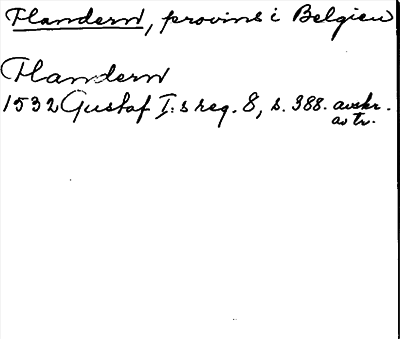 Flandern, provins i Belgien
Flandern
1532 Gustaf I:s reg. 8, s. 388. avskr.
av tr.